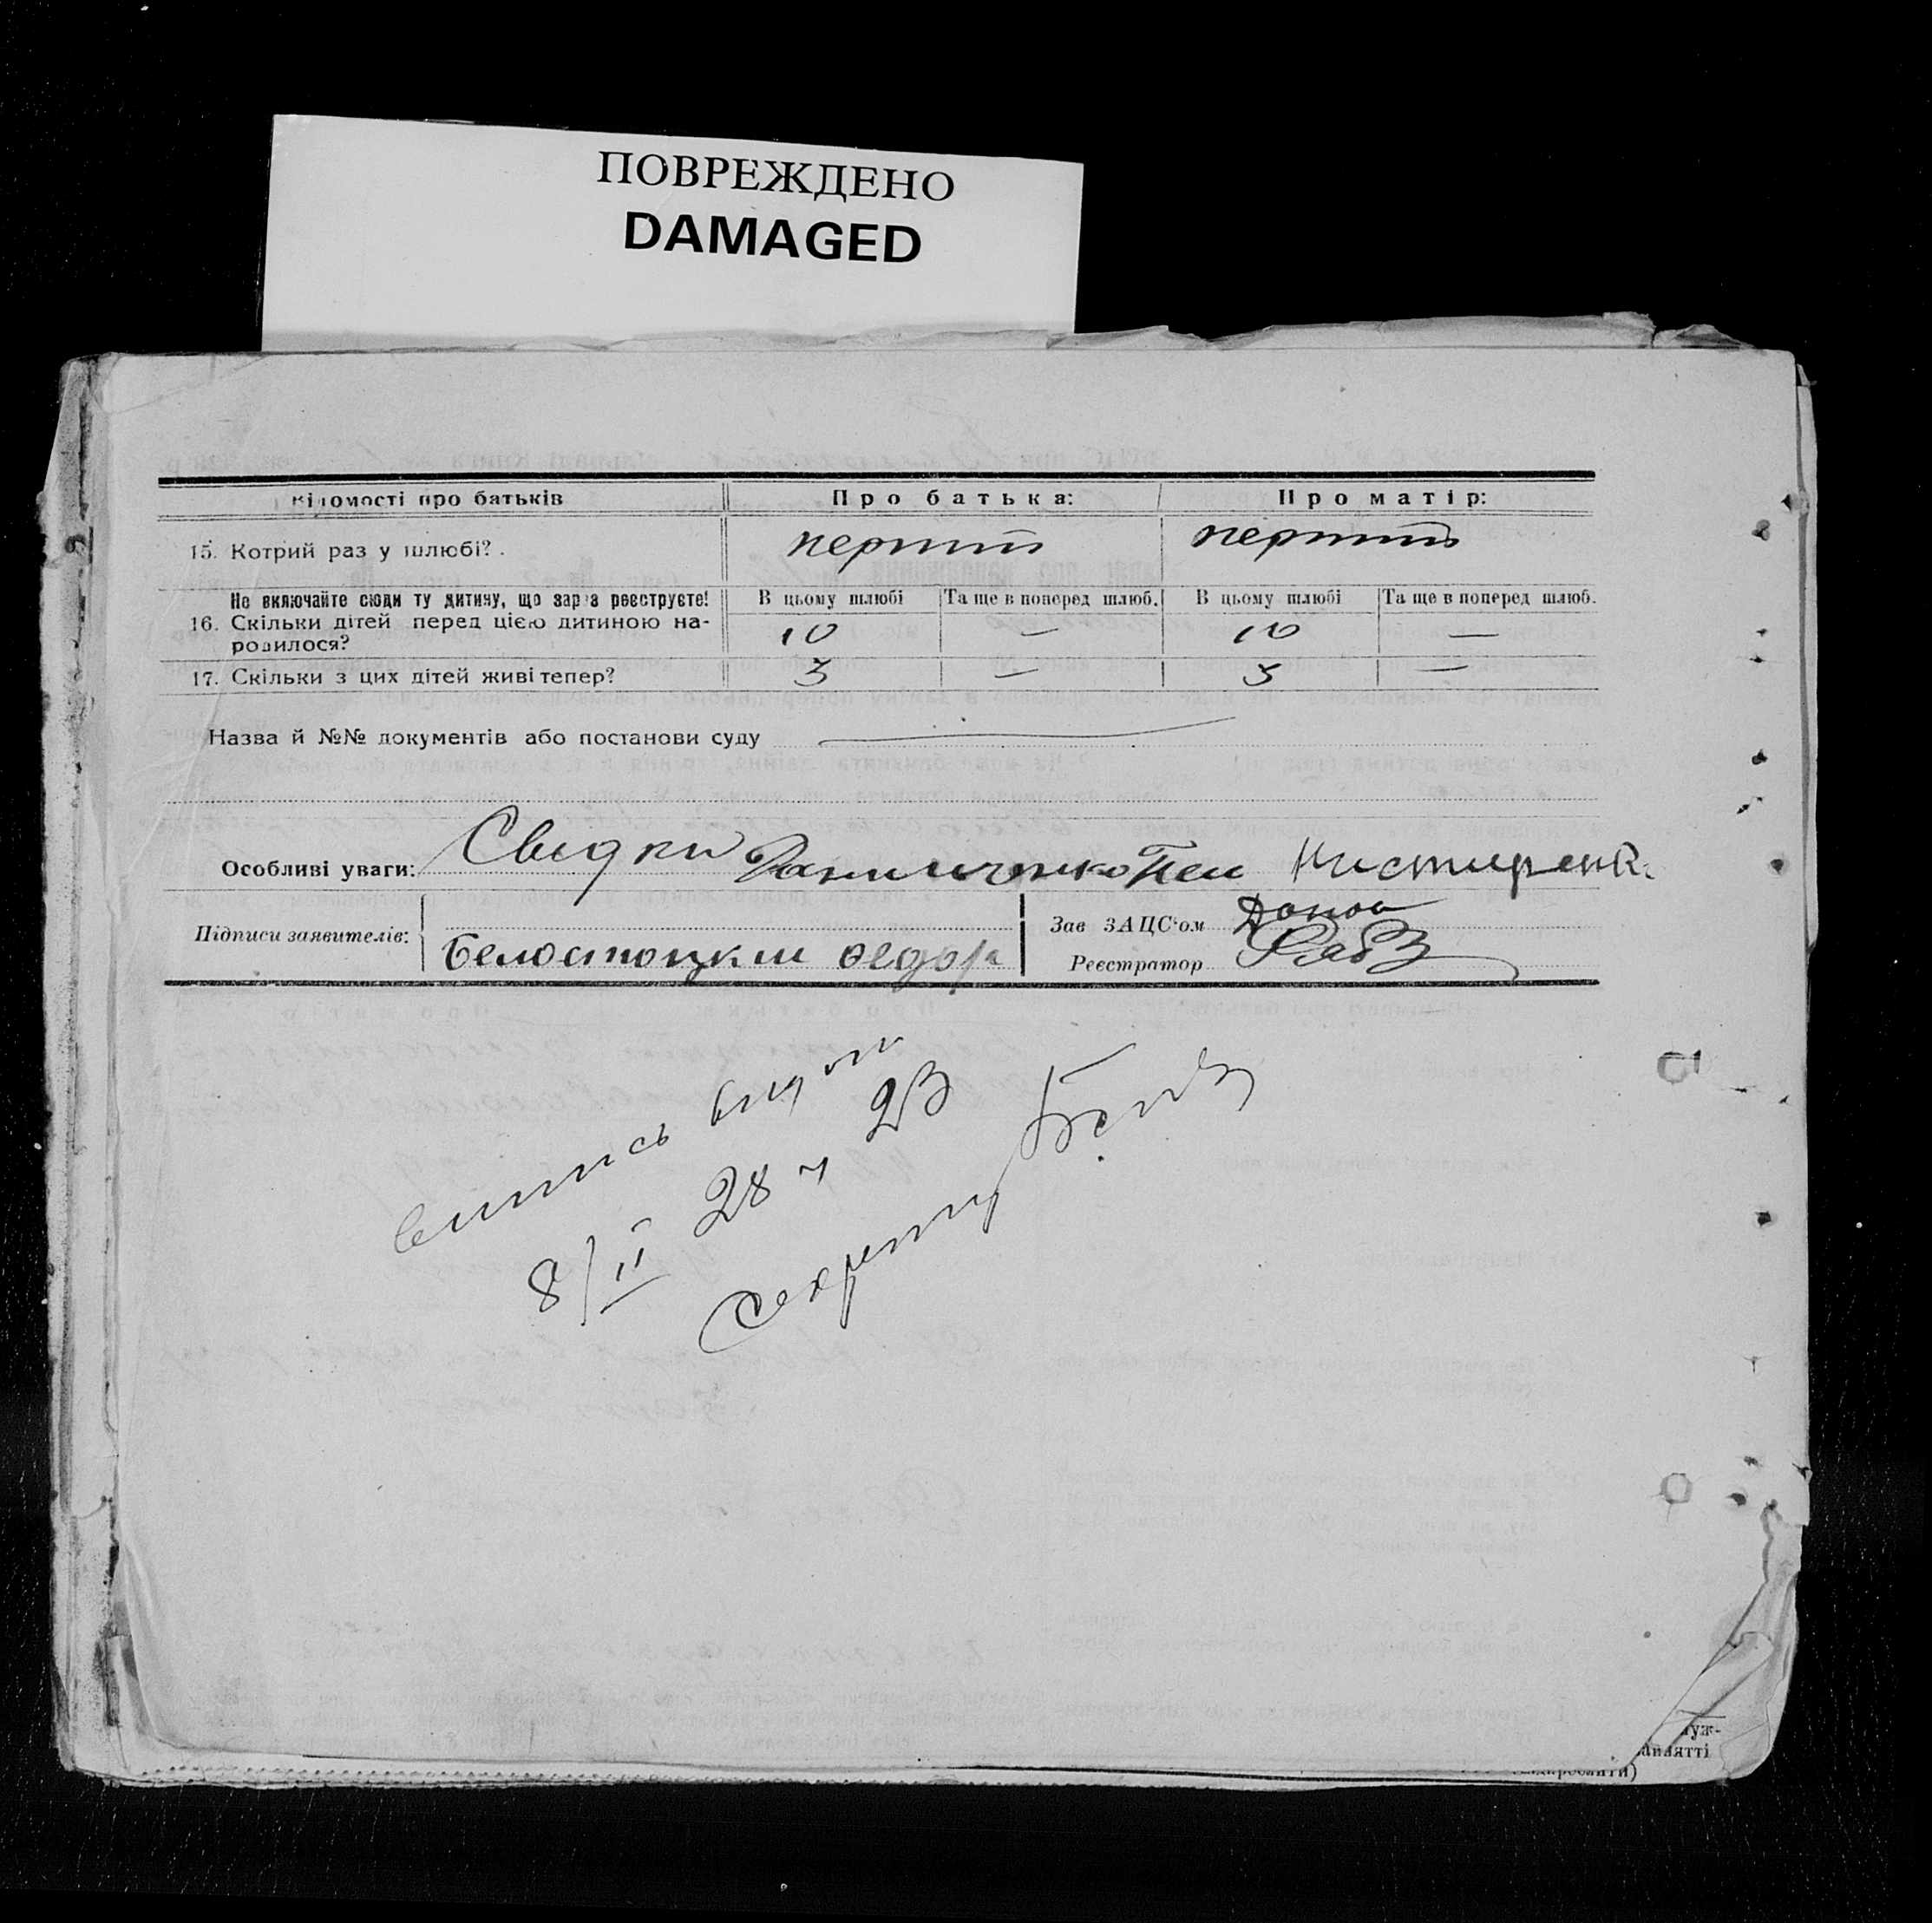 ПОВРЕЖДЕНО
DAMAGED
Відомості про батьків Про батька: Про матір:
15. Котрий раз у шлюбі? перший перший
Не включайте сюди ту дитину, що зараз реєструєте! В цьому шлюбі Та ще в поперед шлюб. В цьому шлюбі Та ще в поперед шлюб.
16. Скільки дітей перед цією дитиною на-
родилося? 10 — 10 —
17. Скільки з цих дітей живі тепер? 3 — 3 —
Назва й №№ документів або постанови суду —
Особливі уваги: Свидки
Підписи заявителів: Белостоцкий Федор
Зав ЗАЦС'ом
Реєстратор
випись
8/II 28 23
Секретар